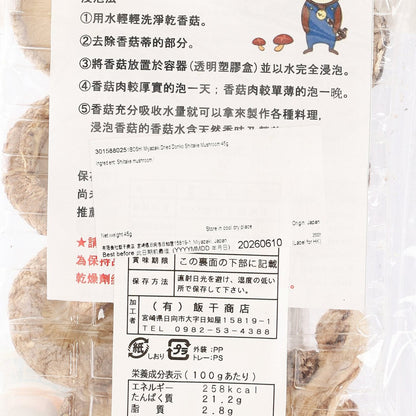 ①用水輕輕洗淨乾香菇。
②去除香菇蒂的部分。
③將香菇放置於容器(透明塑膠盒)並以水完全浸泡。
④香菇肉較厚實的泡一天;香菇肉較單薄的泡一晚。
⑤香菇充分吸收水量就可以拿來製作各種料理,
浸泡香菇的香菇水含天然香味
Miyazaki Dried Donko Shiitake Mushroom 45g
Ingredient: Shiitake mushroom
保存
尚未
推薦
Store in cool dry place
Origin: Japan
Net weight 45g
(Label for HK)
宮崎県日向市大字日知屋15819-1, Miyazaki, Japan
Best before 此日期前最佳 (YYYYMMDD 年月日) 20260610
★請
為保持
乾燥劑
賞味期限 この裏面の下部に記載
保存方法 直射日光を避け、湿度の低い所で保存して下さい。
加工者 (有)飯干商店
宮崎県日向市大字日知屋15819-1
TEL 0982-53-4388
紙 しおり プラ 外装:PP
トレー:PS
栄養成分表示(100gあたり)
エネルギー 258kcal
たんぱく質 21.2g
脂質 2.8g